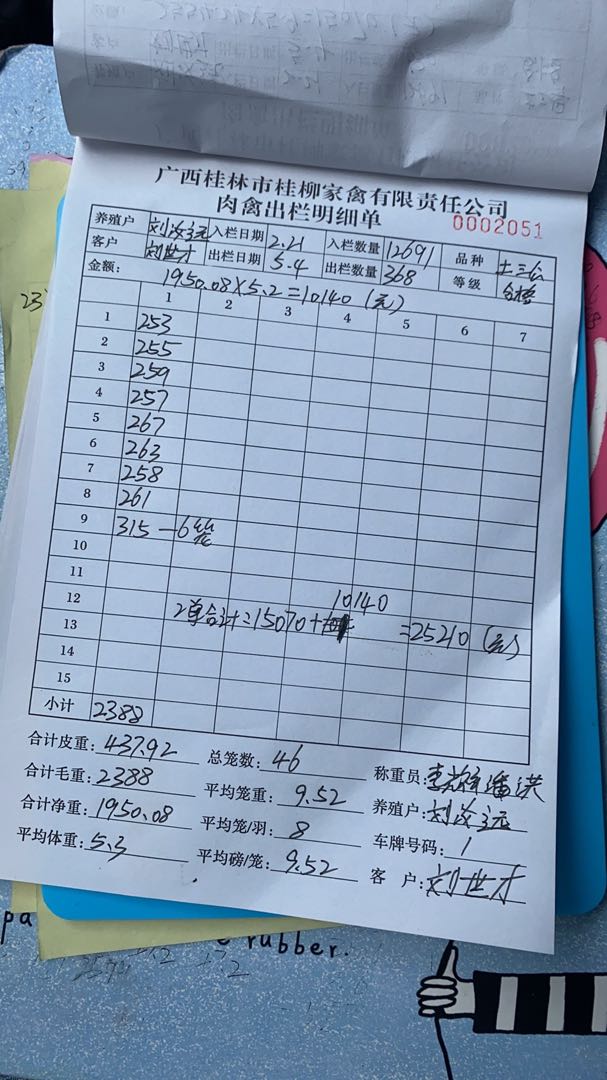 广西桂林市桂柳家禽有限责任公司
肉禽出栏明细单 0002051
养殖户 入栏日期 2.21 入栏数量 12691 品种 土三
客户 刘世才 出栏日期 5.4 出栏数量 368 等级 合格
金额: 1950.08×5.2=10140(元)
1 2 3 4 5 6 7
1 253
2 255
3 259
4 257
5 267
6 263
7 258
8 261
9 315-6笼
10
11
12 10140
13 2单合计=15070+ =25210(元)
14
15
小计 2388
合计皮重: 437.92 总笼数: 46 称重员:
合计毛重: 2388 平均笼重: 9.52 养殖户:
合计净重: 1950.08 平均笼/羽: 8 车牌号码: 1
平均体重: 5.3 平均磅/笼: 9.52 客 户: 刘世才
pa
e rubber.